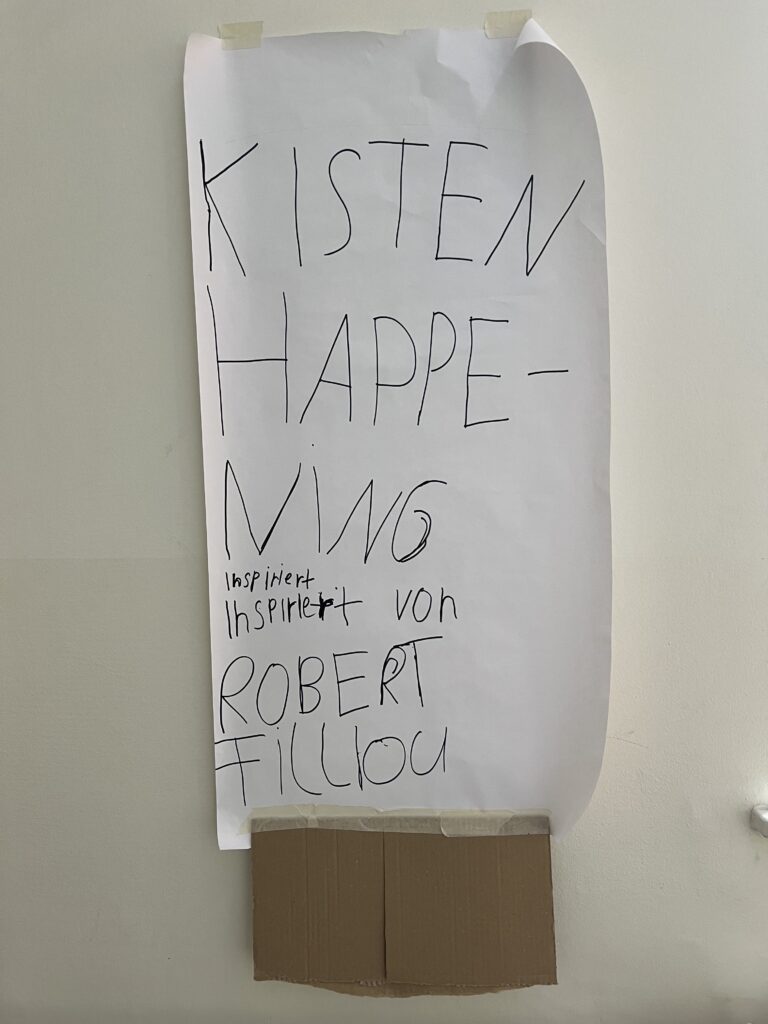 KISTEN
HAPPE-
NiNG
Inspiriert
Inspiriert von
ROBERT
FiLLiOU